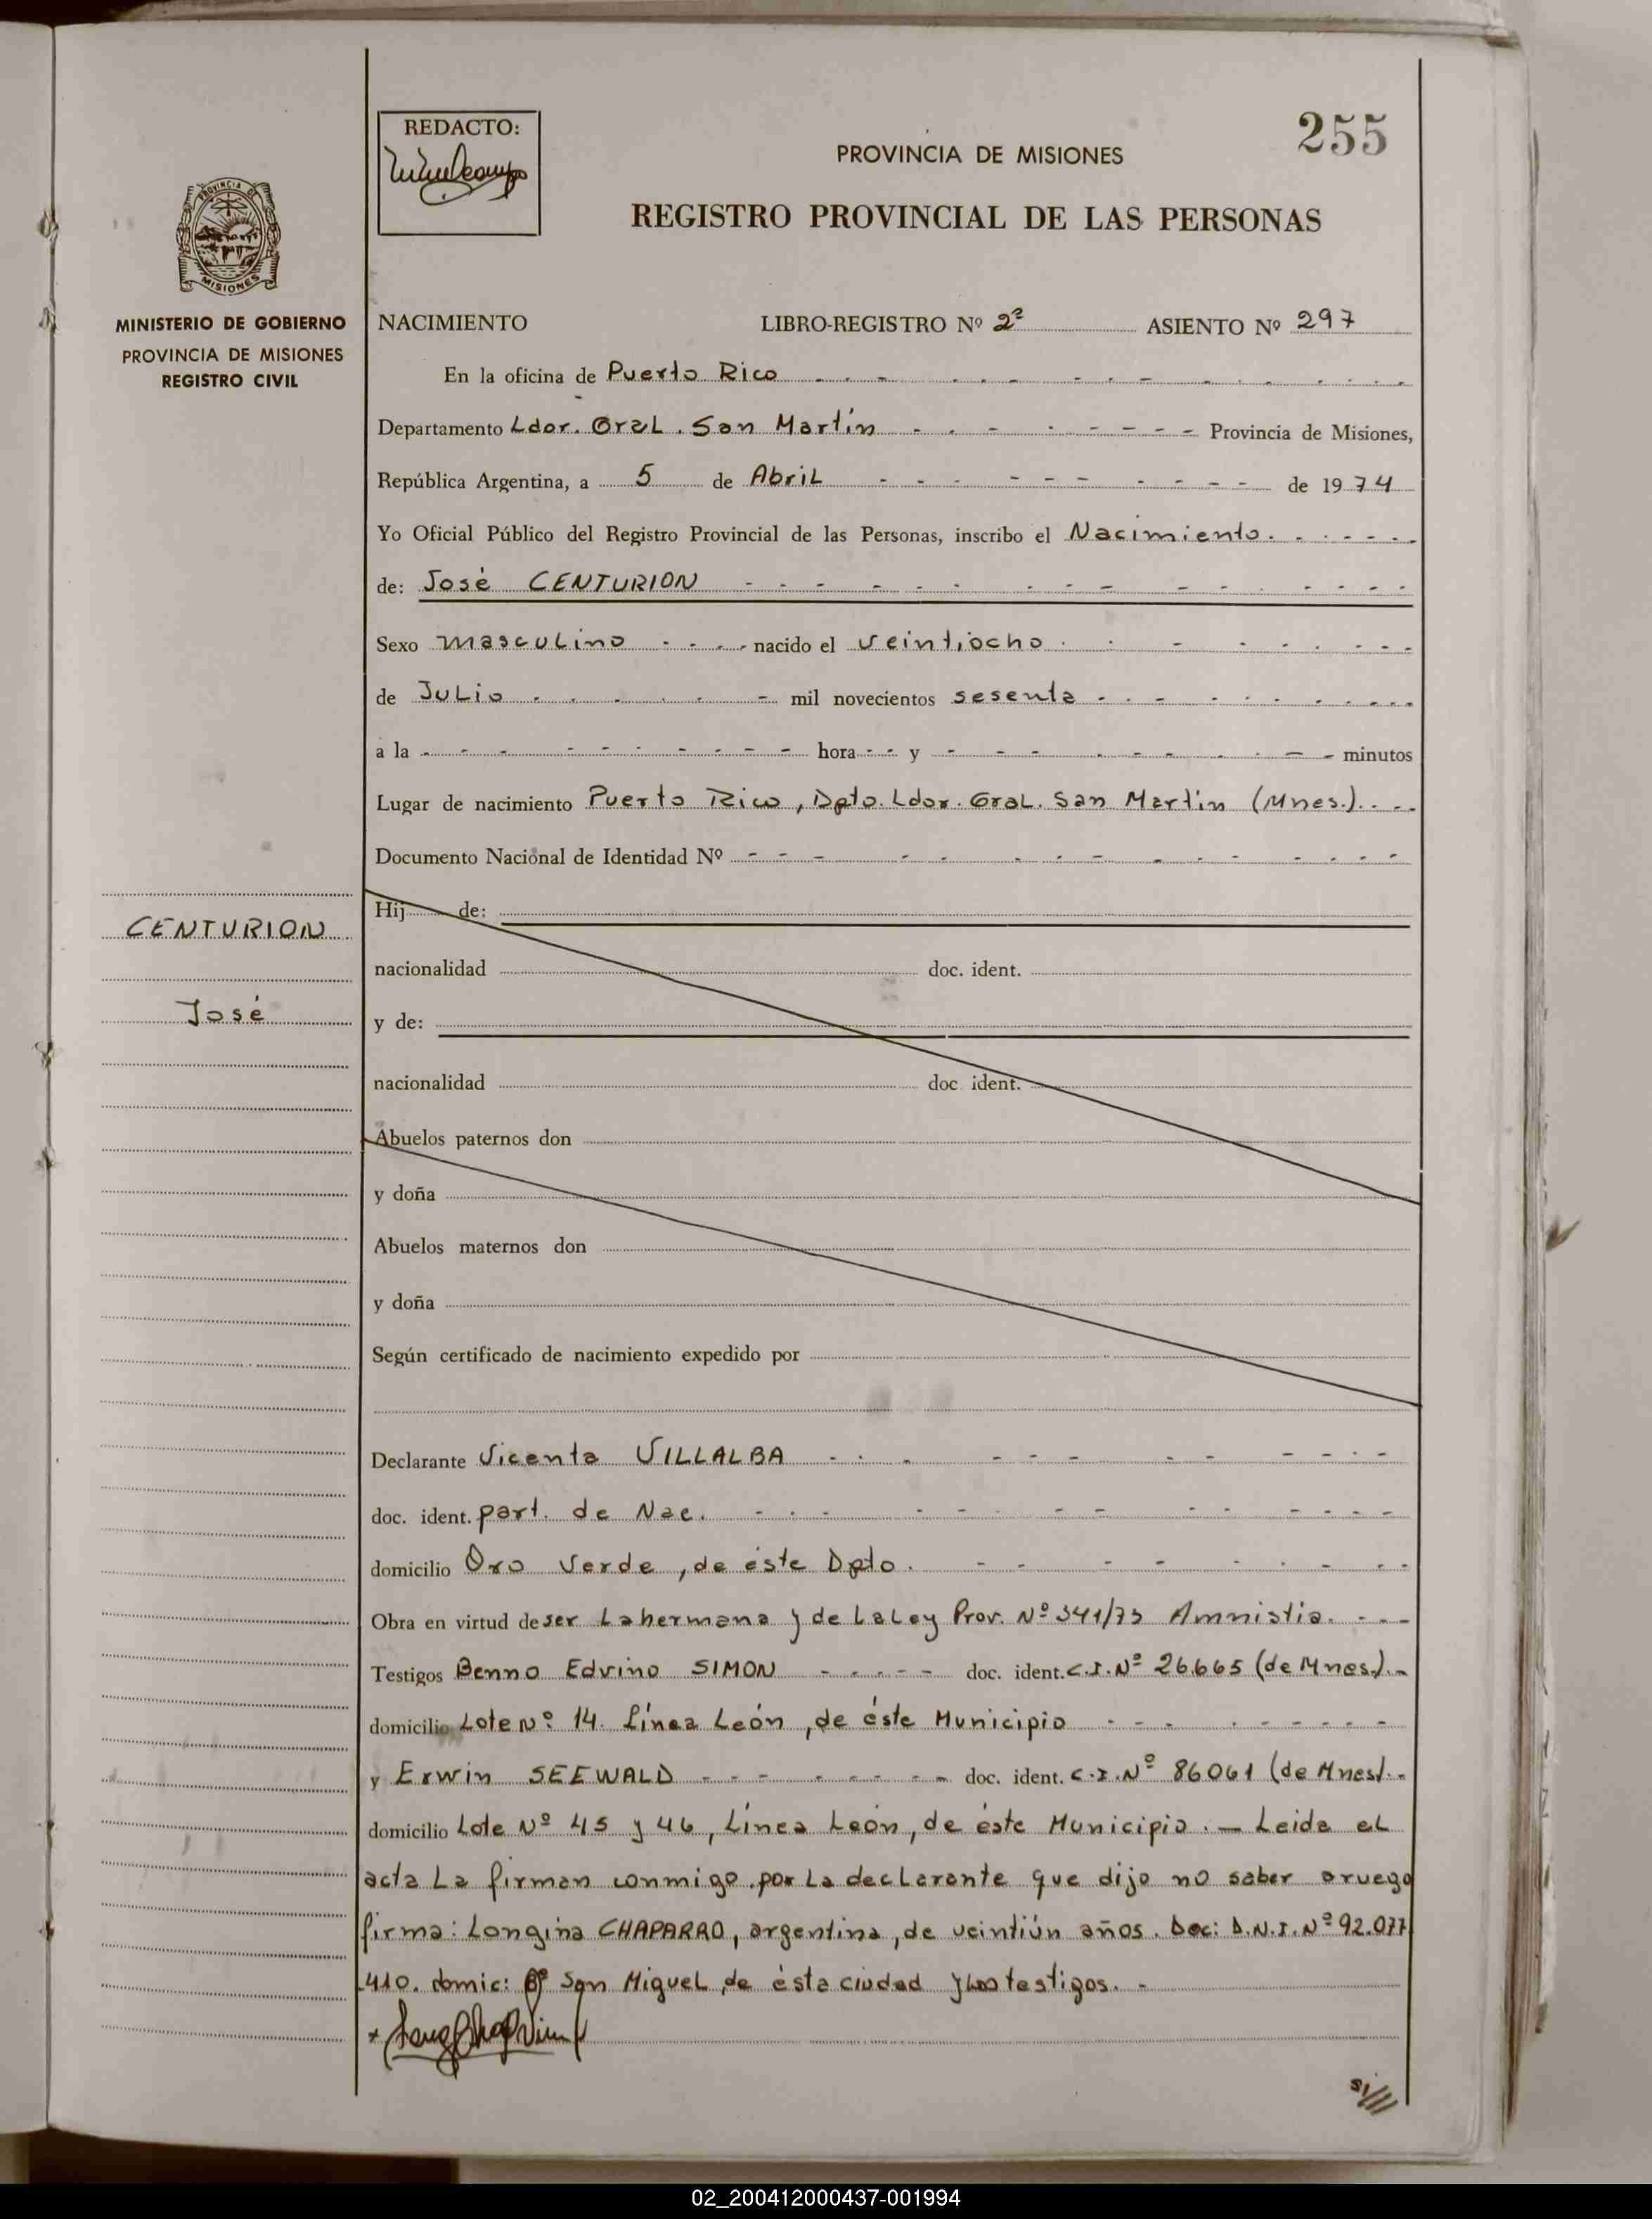 255
REDACTO:
PROVINCIA DE MISIONES
REGISTRO PROVINCIAL DE LAS PERSONAS
PROVINCIA DE
MISIONES
MINISTERIO DE GOBIERNO
PROVINCIA DE MISIONES
REGISTRO CIVIL
NACIMIENTO LIBRO-REGISTRO Nº 2º ASIENTO Nº 297
En la oficina de Puerto Rico
Departamento Ldor. Gral. San Martín Provincia de Misiones,
República Argentina, a 5 de Abril de 1974
Yo Oficial Público del Registro Provincial de las Personas, inscribo el Nacimiento.
de: José CENTURION
Sexo masculino nacido el veintiocho
de Julio mil novecientos sesenta
a la hora y minutos
Lugar de nacimiento Puerto Rico, Dpto. Ldor. Gral. San Martin (Mnes.).
Documento Nacional de Identidad Nº
CENTURION
José
Hij de:
nacionalidad doc. ident.
y de:
nacionalidad doc. ident.
Abuelos paternos don
y doña
Abuelos maternos don
y doña
Según certificado de nacimiento expedido por
Declarante Vicenta VILLALBA
doc. ident. part. de Nac.
domicilio Oro Verde, de éste Dpto.
Obra en virtud de ser la hermana y de la Ley Prov. Nº 341/73 Amnistia.
Testigos Benno Edvino SIMON doc. ident. C.I. Nº 26.665 (de Mnes.).
domicilio Lote Nº 14. Línea León, de éste Municipio
y Erwin SEEWALD doc. ident. C.I. Nº 86061 (de Mnes).
domicilio Lote Nº 45 y 46, Línea León, de éste Municipio. — Leida el
acta la firman conmigo, por la declarante que dijo no saber a ruego
firma: Longina CHAPARRO, argentina, de veintiún años. Doc: D.N.I. Nº 92.077
410. domic: Bº San Miguel, de ésta ciudad y los testigos.
02_200412000437-001994